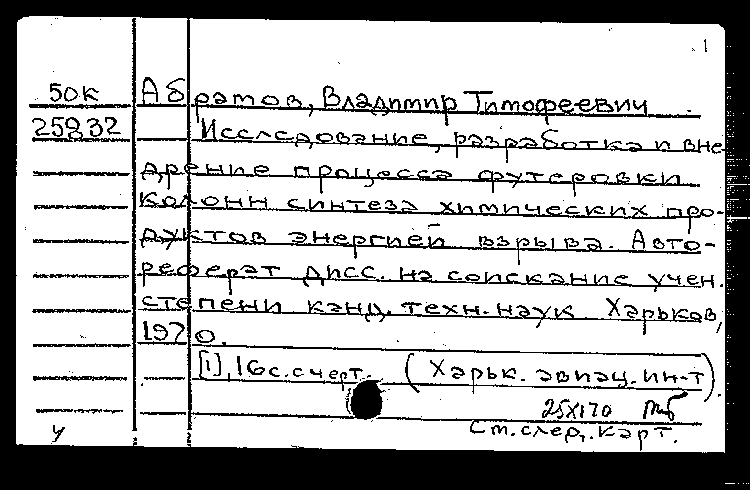 1
50к Абратов, Владимир Тимофеевич
25932 Исследование, разработка и вне-
дрение процесса футеровки
колонн синтеза химических про-
дуктов энергией взрыва. Авто-
реферат дисс. на соискание учен.
степени канд. техн. наук. Харьков,
1970.
[1], 16 с. с черт. (Харьк. авиац. ин-т).
25X170
См. след. карт.
у